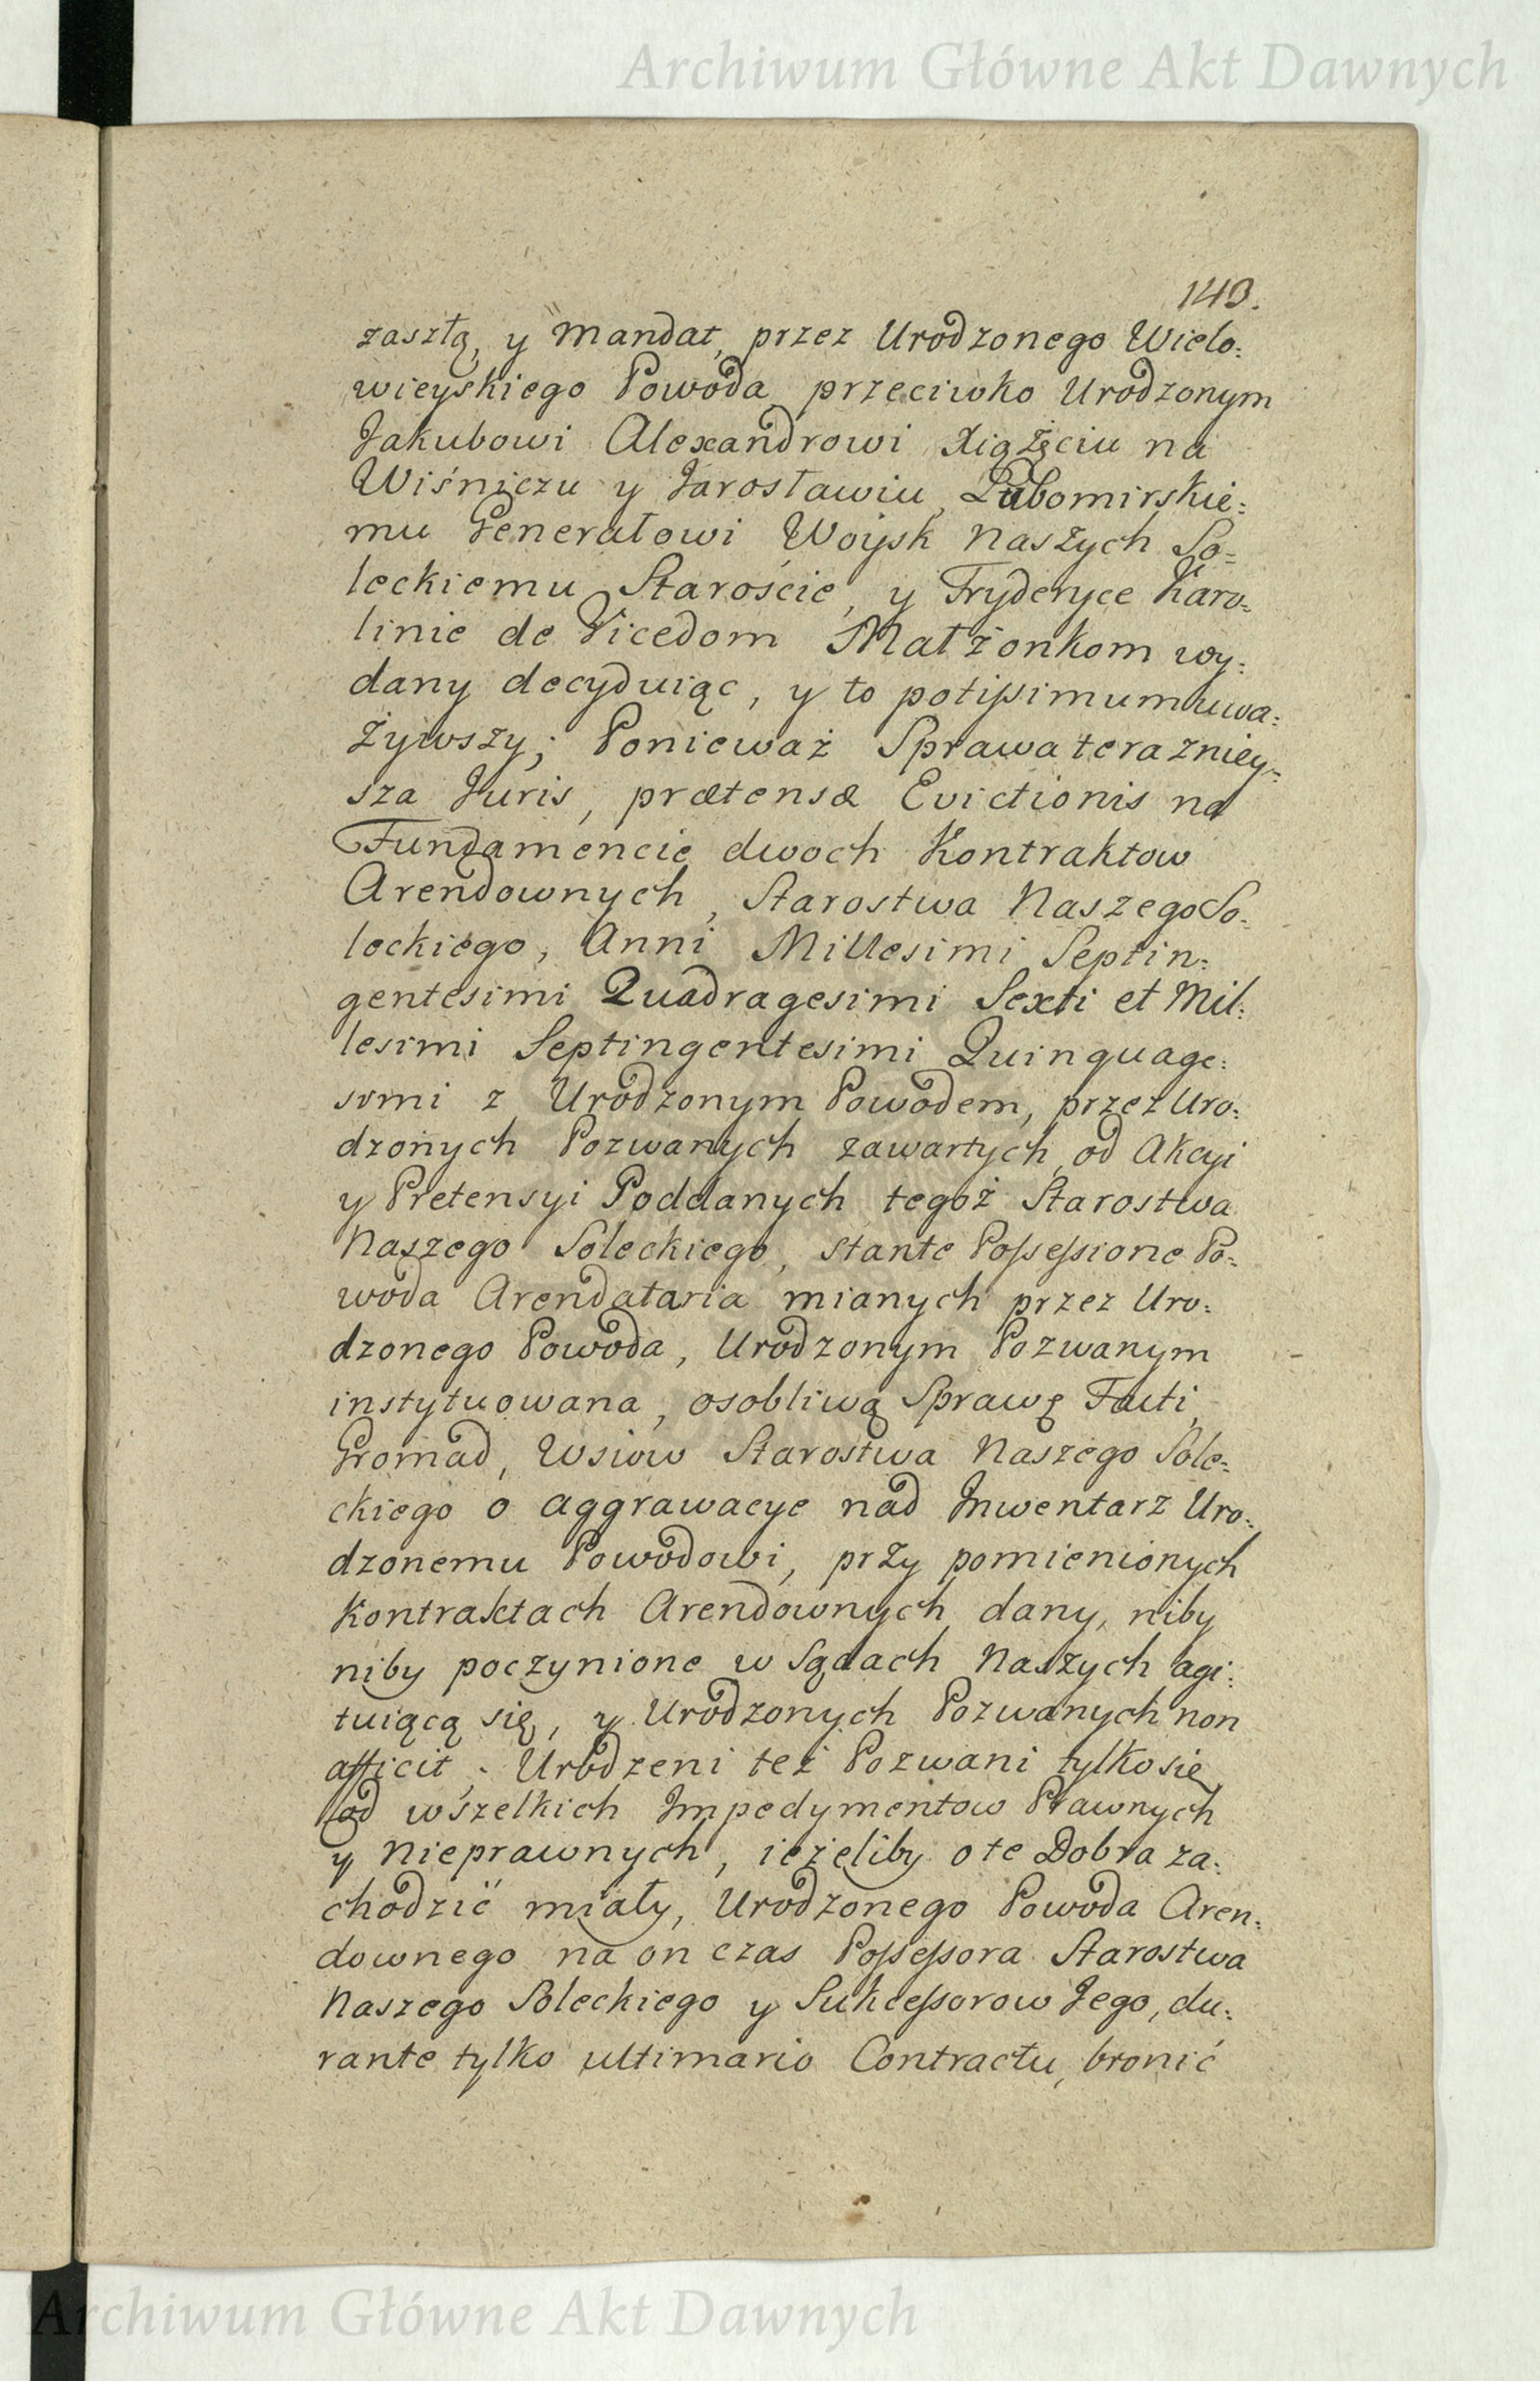 Archiwum Główne Akt Dawnych
143.
zaszłą, y Mandat, przez Urodzonego Wielo=
wieyskiego Powoda, przeciwko Urodzonym
Jakubowi Alexandrowi Xiążęciu na
Wiśniczu y Jarosławiu, Lubomirskie=
mu Generałowi Woysk Naszych So=
leckiemu Staroście, y Fryderyce Karo=
linie de Vicedom Małżonkom wy=
dany decyduiąc, y to potissimum uwa=
żywszy; Ponieważ Sprawa teraźniey=
sza Juris, prætensæ Evictionis na
Fundamencie dwoch Kontraktow
Arendownych, Starostwa Naszego So=
leckiego, Anni Millesimi Septin=
gentesimi Quadragesimi Sexti et Mil=
lesimi Septingentesimi Quinquage=
simi z Urodzonym Powodem, przez Uro=
dzonych Pozwanych zawartych, od Akcyi
y Pretensyi Poddanych tegoż Starostwa
Naszego Soleckiego, stante Possessione Po=
woda Arendataria mianych przez Uro=
dzonego Powoda, Urodzonym Pozwanym
instytuowana, osobliwą Sprawę Facti,
Gromad, Wsiow Starostwa Naszego Sole=
ckiego o aggrawacye nad Inwentarz Uro=
dzonemu Powodowi, przy pomienionych
Kontraktach Arendownych dany, niby
niby poczynione w Sądach Naszych agi=
tuiącą się, y Urodzonych Pozwanych non
afficit, Urodzeni też Pozwani tylko się
od wszelkich Impedymentow Prawnych
y Nieprawnych, ieżeliby o te Dobra za=
chodzić miały, Urodzonego Powoda Aren=
downego na on czas Possessora Starostwa
Naszego Soleckiego y Sukcessorow Jego, du=
rante tylko ultimario Contractu, bronić
Archiwum Główne Akt Dawnych